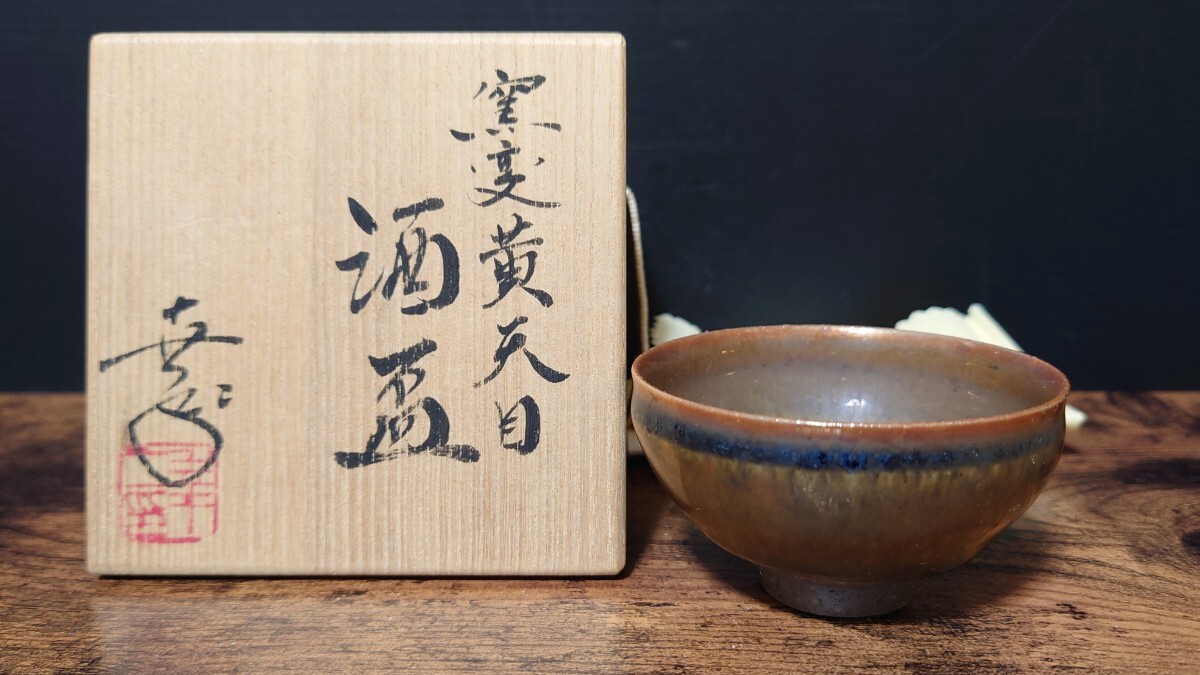 窯変黄天目
酒盃